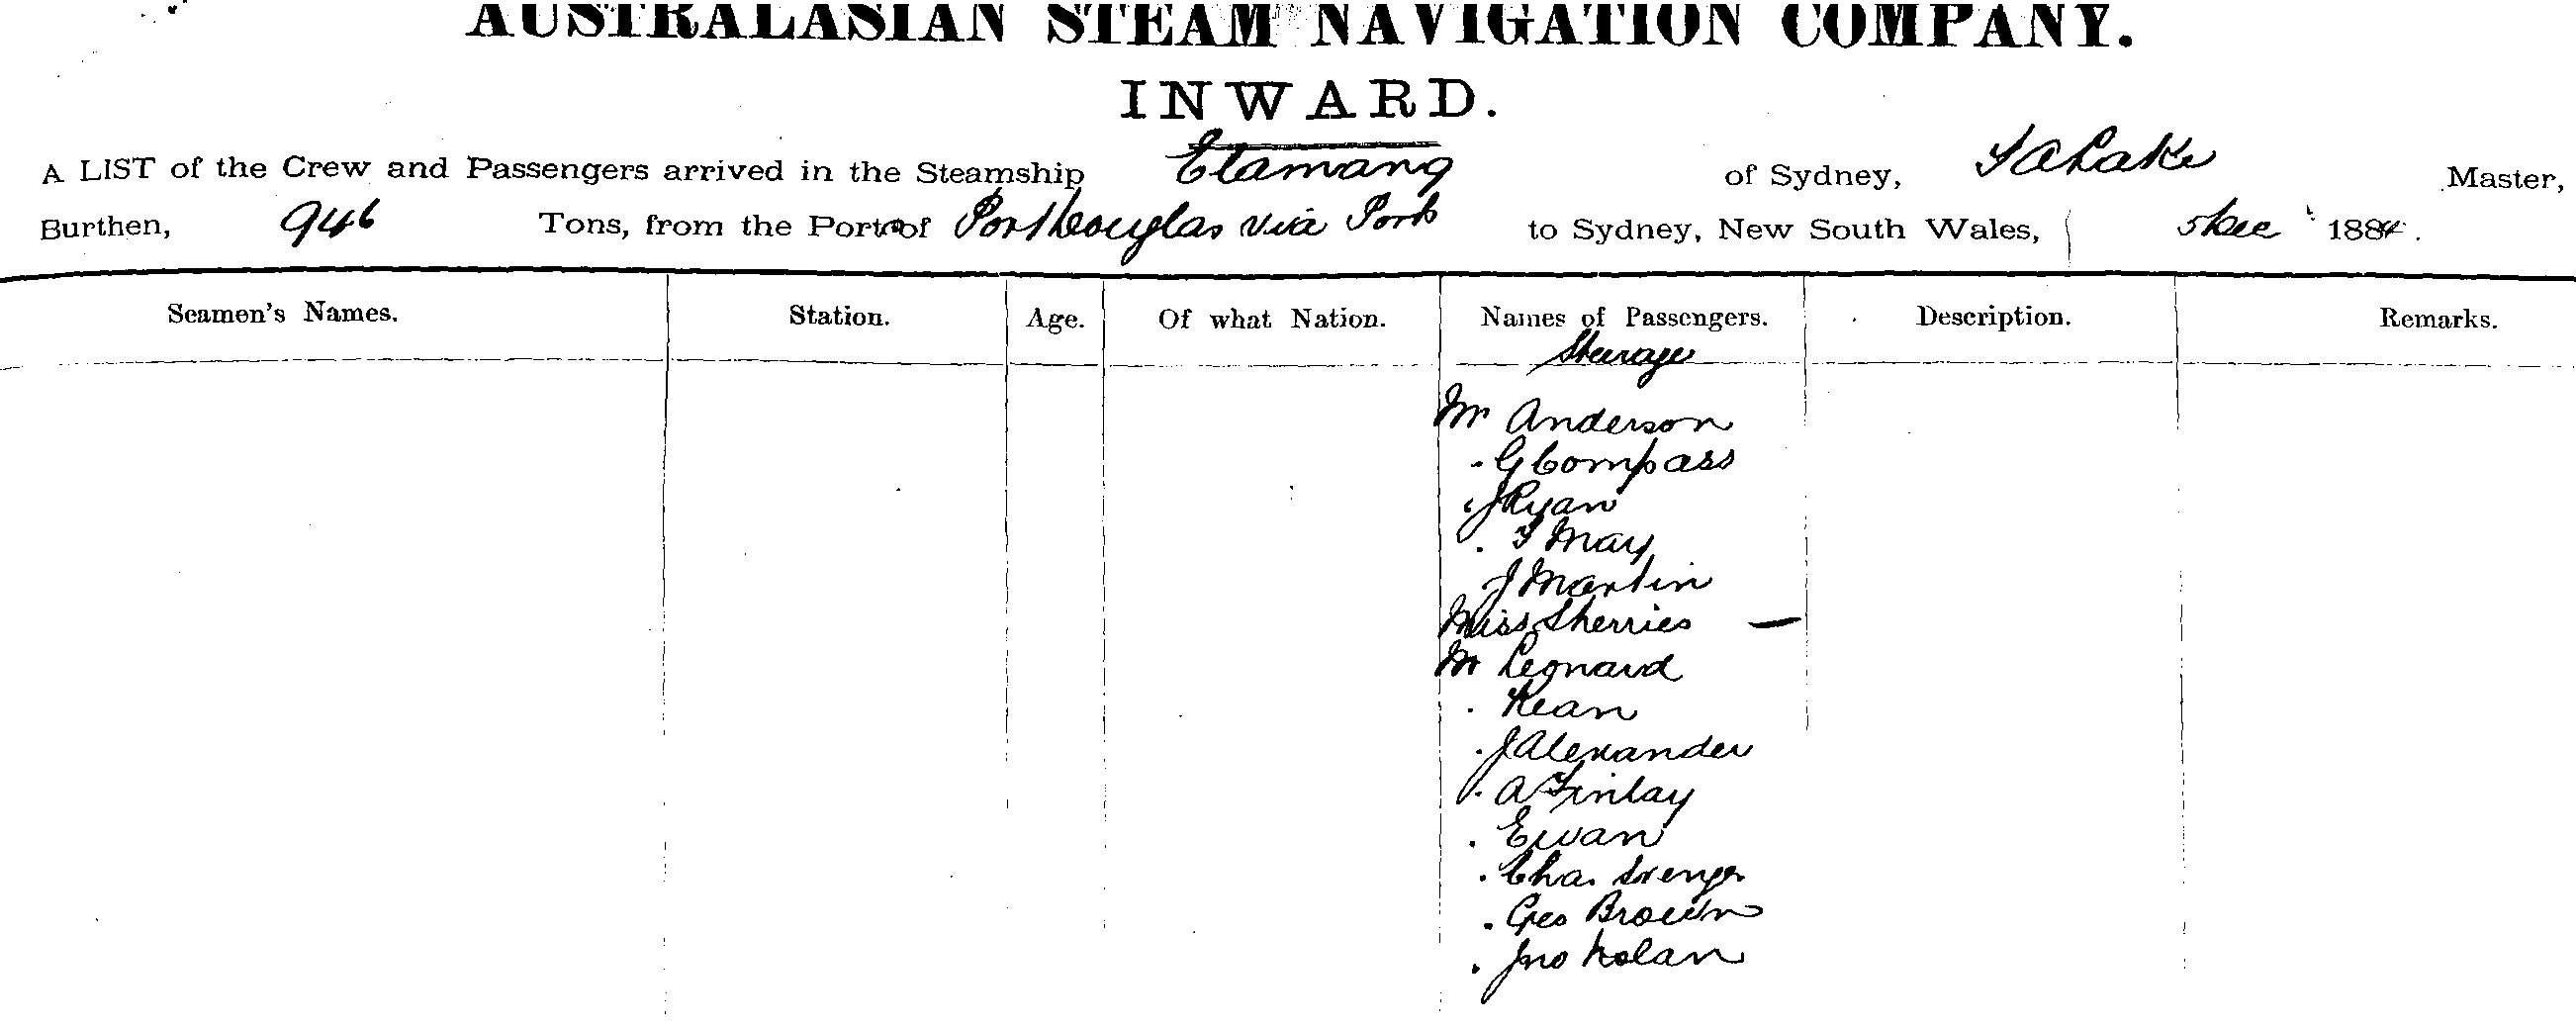 AUSTRALASIAN STEAM NAVIGATION COMPANY.
INWARD.
A LIST of the Crew and Passengers arrived in the Steamship Elamang of Sydney, Lake Master,
Burthen, 946 Tons, from the Ports of Port Douglas via Ports to Sydney, New South Wales, 5 Dec 1884.
Seamen's Names. Station. Age. Of what Nation. Names of Passengers. Description. Remarks.
Steerage
Mr Anderson
. G Compass
. J Ryan
. T May
J Martin
Miss Sherries —
Mr Leonard
. Kean
. J Alexander
. A Finlay
. Ewan
. Chas
. Geo Brown
. Jno Nolan